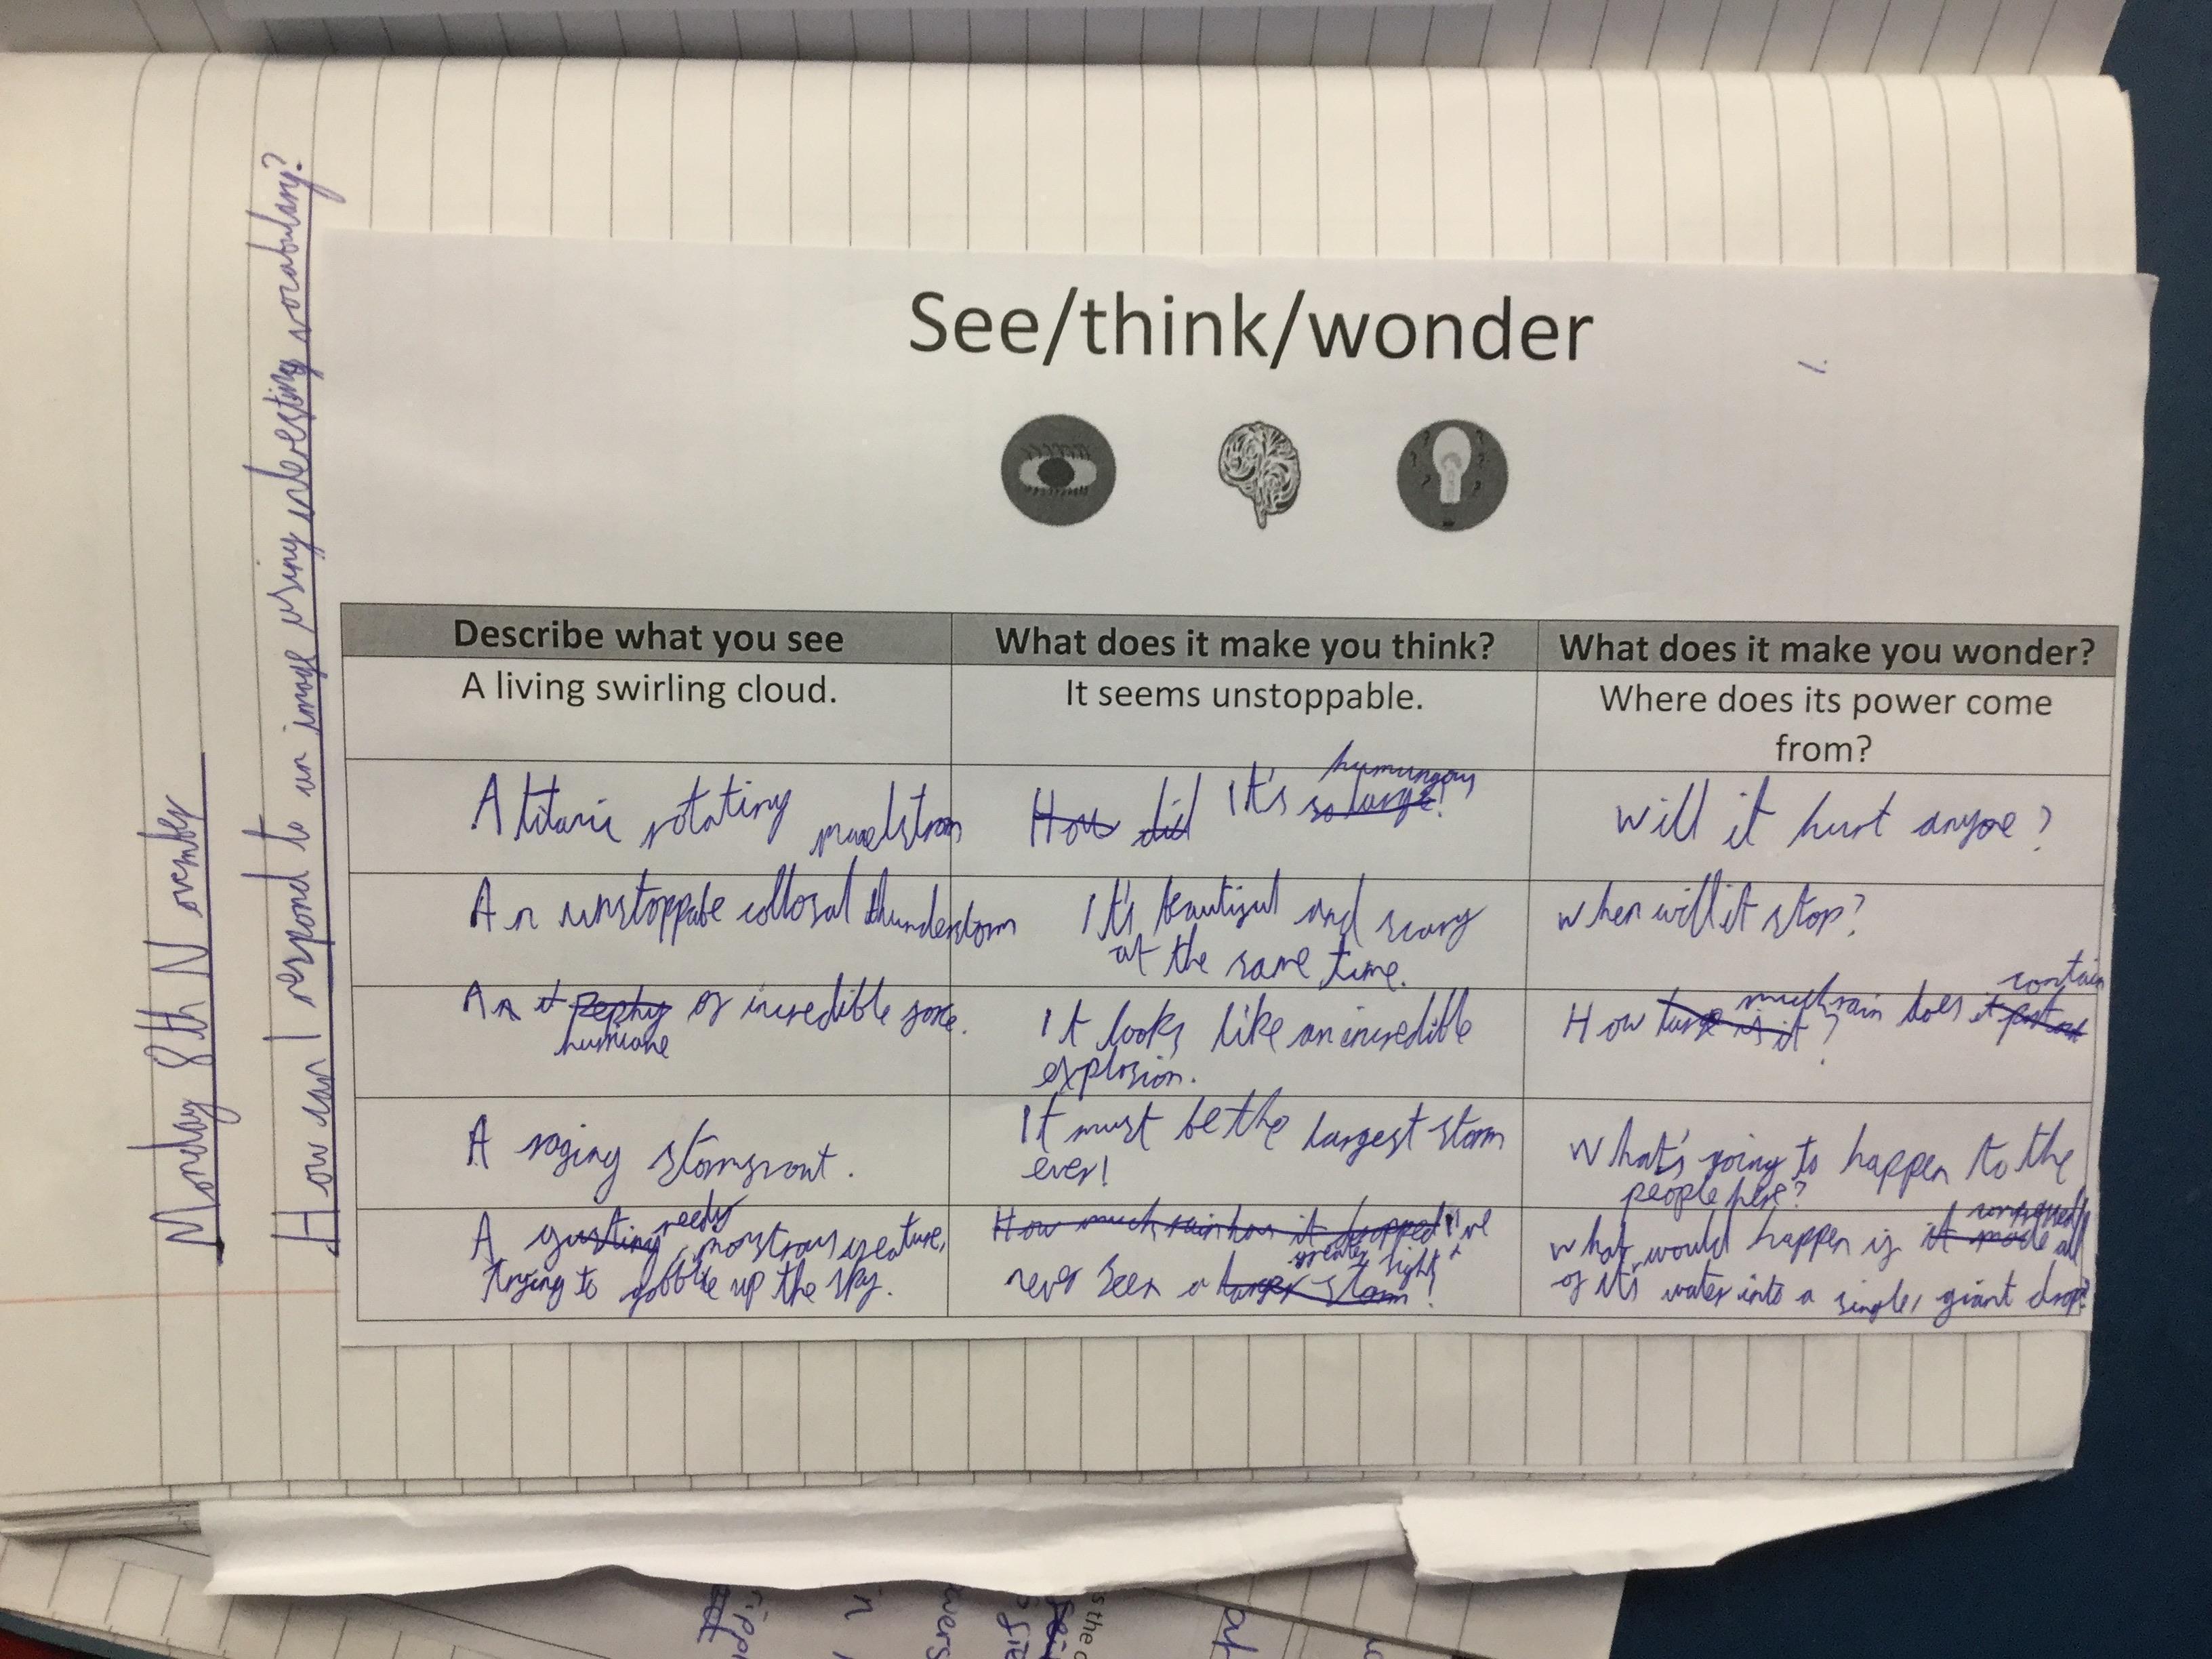 Monday 8th November
How can I respond to an image using interesting vocabulary?
See/think/wonder
Describe what you see
What does it make you think?
What does it make you wonder?
A living swirling cloud.
It seems unstoppable.
Where does its power come
from?
A titanic rotating maelstrom
humungous
How did It's so large!
Will it hurt anyoe?
An unstoppabe collosal thunderstorm
It's beautiful and scary
at the same time.
When will it stop?
An it zephyr of incredible force.
hurricane
It looks like an incredible
explosion.
much rain does contain
How large is it? it
A raging stormfront.
It must be the largest storm
ever!
What's going to happen to the
people here?
A gusting greedy, monstrous creature,
trying to gobble up the sky.
How much rain has it dropped I've
greater sight
never seen a larger storm!
What would happen if it made all
of it's water into a single, giant drop?